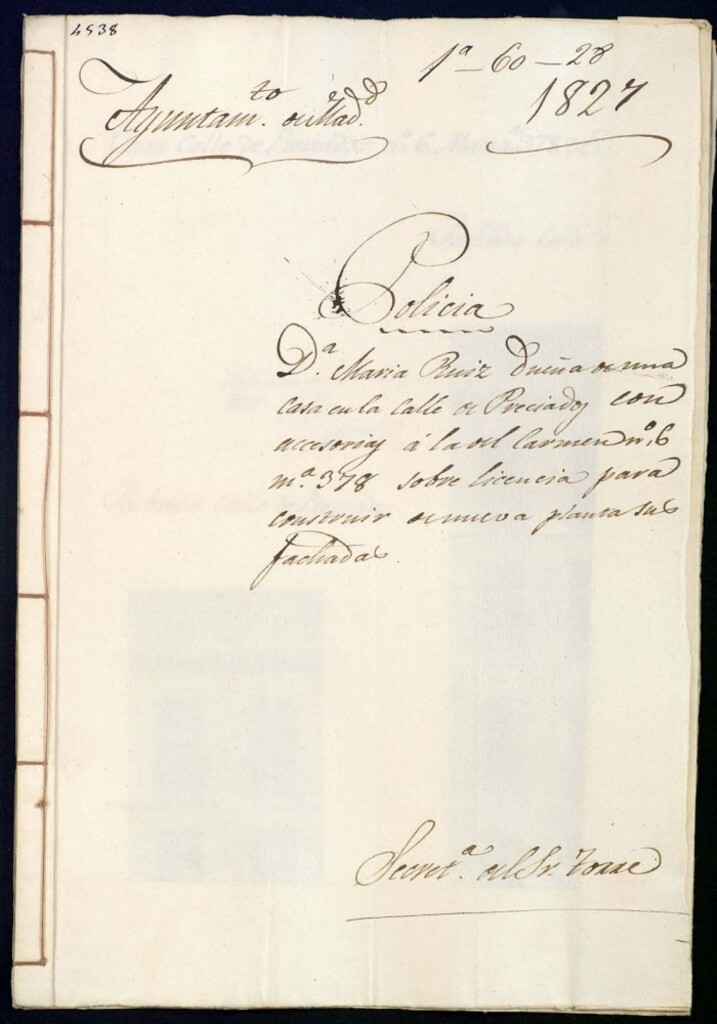 4538
1ª - 60 - 28
Ayuntam.to de Mad.d
1827
Policia
D.ª Maria Ruiz Dueña de una
casa en la calle de Preciados con
accesorias á la del Carmen nº. 6
m.ª 378 sobre licencia para
construir de nueva planta sus
fachadas.
Secret.ª del Sr. Torre